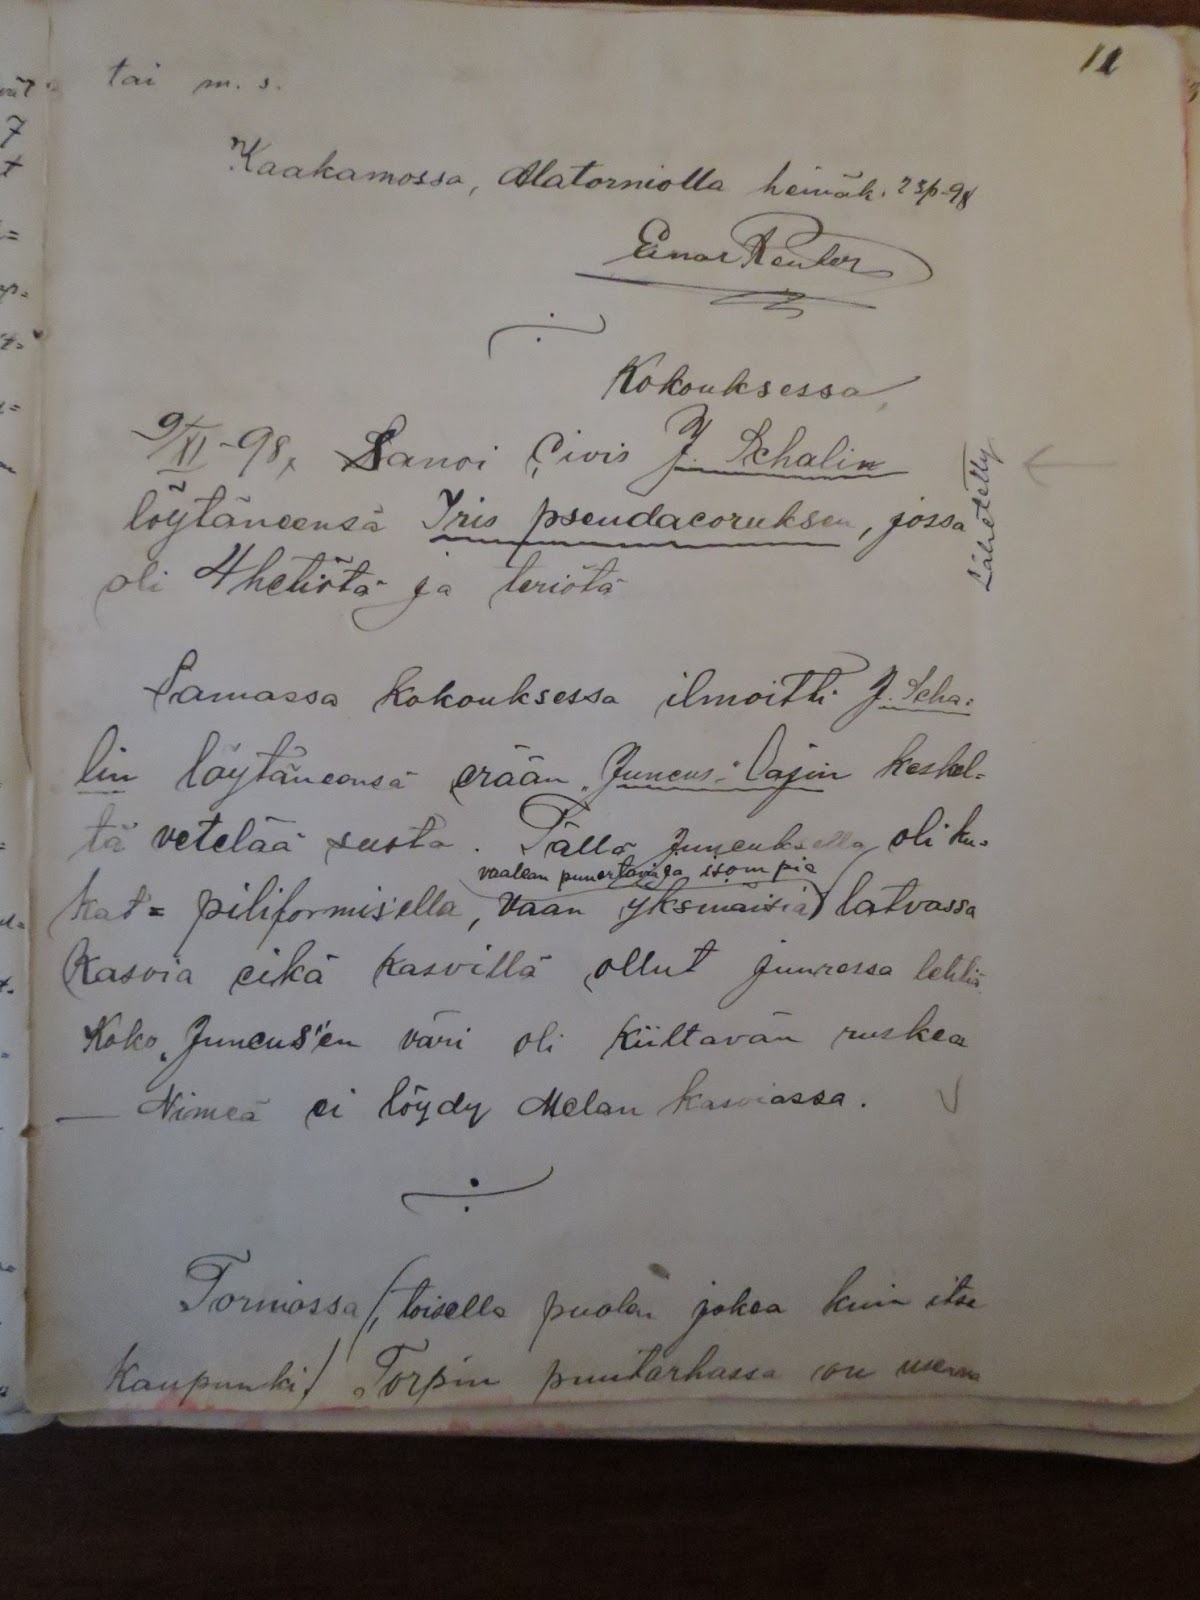 11
tai m. s.
Kaakamossa, Alatorniolla heinäk. 23p-98
Einar Reuter
Kokouksessa,
9/XI -98, Sanoi Civis J. Schalin
löytäneensä Iris pseudacoruksen, jossa
oli 4 hetiötä ja teriötä
Lähetetty
Samassa kokouksessa ilmoitti J. Scha=
lin löytäneensä erään "Juncus"=lajin keskel=
tä vetelää suota. Tällä Juncuksella oli ku=
vaalean punertavia ja isompia
kat= piliformis'ella, vaan yksinäisiä latvassa
kasvia eikä kasvillä ollut juuressa lehtiä.
Koko "Juncus"en väri oli kiiltävän ruskea
— Nimeä ei löydy Melan kasviossa.
Torniossa /, toisella puolen jokea kuin itse
kaupunki / Torpin puutarhassa on useana